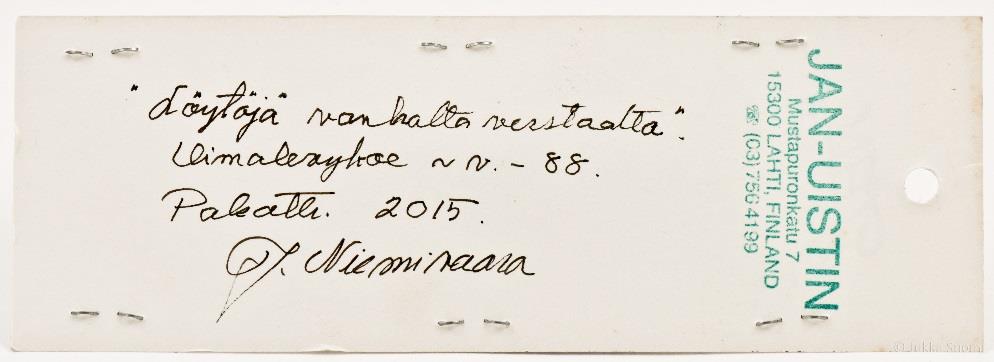 "Löytöjä vanhalta verstaalta".
Vimakerykoe ~ v. - 88.
Pakatti. 2015.
J. Niemivaara
JAN-UISTIN
Mustapuronkatu 7
15300 LAHTI, FINLAND
☎ (03) 756 4199